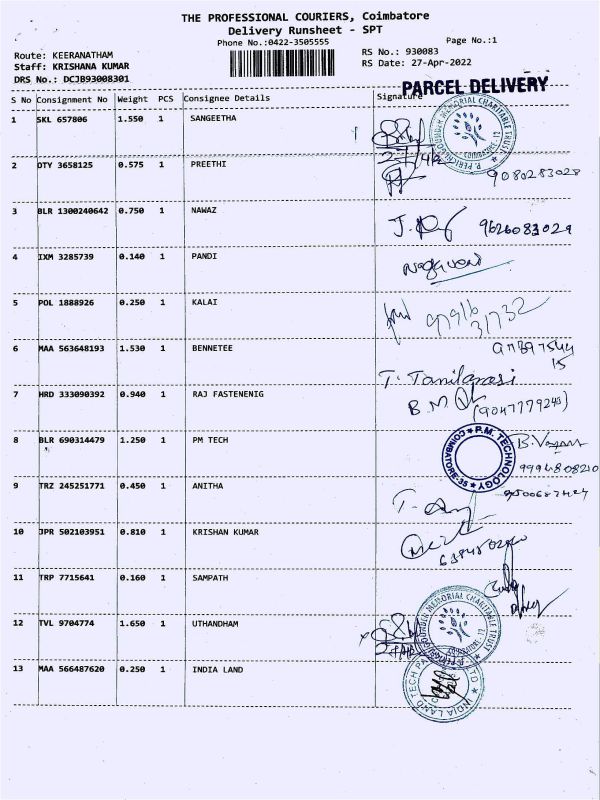 THE PROFESSIONAL COURIERS, Coimbatore
Delivery Runsheet - SPT
Phone No.:0422-3505555
Page No.:1
Route: KEERANATHAM
RS No.: 930083
Staff: KRISHANA KUMAR
RS Date: 27-Apr-2022
DRS No.: DCJB93008301
PARCEL DELIVERY
S No Consignment No Weight PCS Consignee Details Signature
1 SKL 657806 1.550 1 SANGEETHA
MEMORIAL CHARITABLE TRUST
2 DTY 3658125 0.575 1 PREETHI
9080283028
3 BLR 1300240642 0.750 1 NAWAZ
9626083029
4 IXM 3285739 0.140 1 PANDI
5 POL 1888926 0.250 1 KALAI
6 MAA 563648193 1.530 1 BENNETEE
T. Tamilarasi
7 HRD 333090392 0.940 1 RAJ FASTENENIG
8 BLR 690314479 1.250 1 PM TECH
P.M. TECHNOLOGY
COIMBATORE-35
9 TRZ 245251771 0.450 1 ANITHA
10 JPR 502103951 0.810 1 KRISHAN KUMAR
11 TRP 7715641 0.160 1 SAMPATH
12 TVL 9704774 1.650 1 UTHANDHAM
MEMORIAL CHARITABLE TRUST
13 MAA 566487620 0.250 1 INDIA LAND